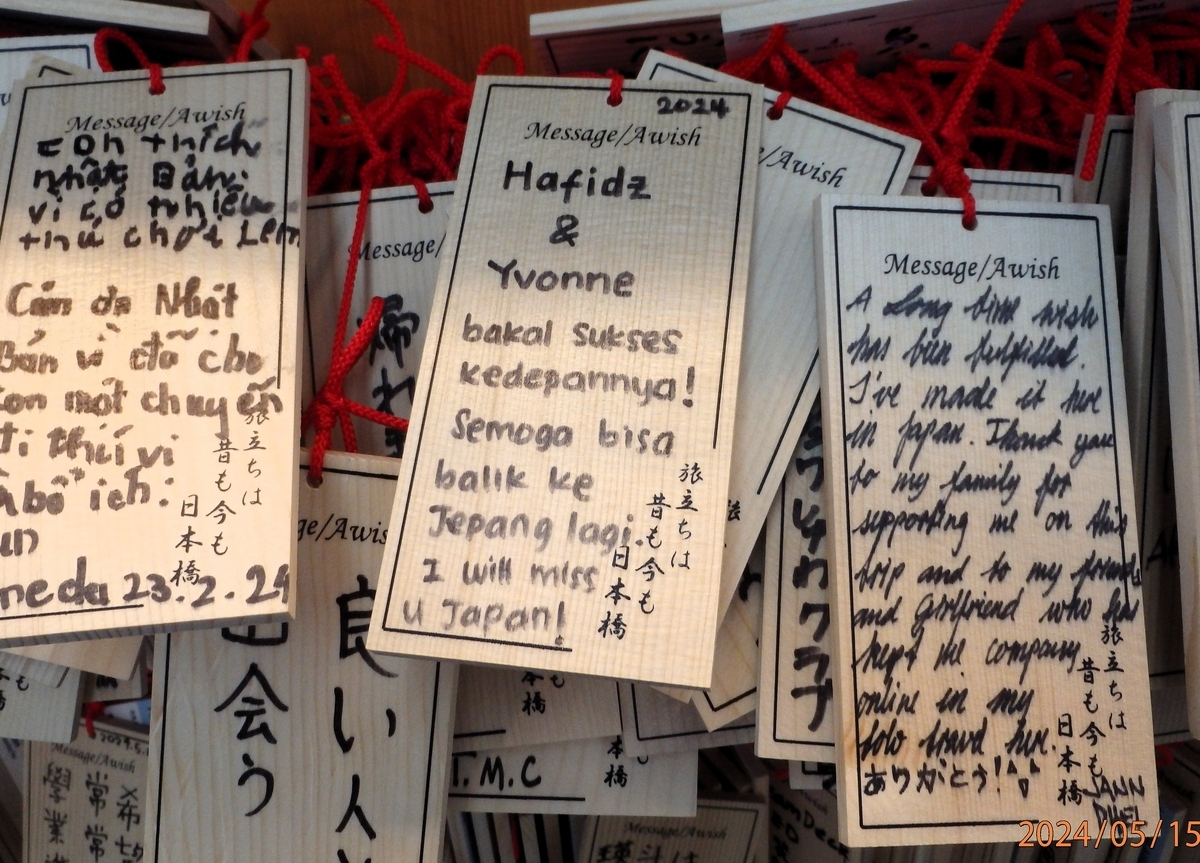 Message/Awish
con thích
nhật Bản.
vì có nhiều
thứ chơi Lém
Cản ơn Nhật
Bản vì đã cho
con một chuyến
đi thú vị
bổ ích.
neda 23.2.24
旅立ちは
昔も今も
日本橋
Message/
帰
2024
Message/Awish
Hafidz
&
Yvonne
bakal sukses
kedepannya!
Semoga bisa
balik ke
Jepang lagi.
I will miss
U Japan!
旅立ちは
昔も今も
日本橋
/Awish
Message/Awish
A Long time wish
has been fulfilled.
I've made it here
in Japan. Thank you
to my family for
supporting me on this
trip and to my friends
and Girlfriend who has
kept me company
online in my
solo travel here.
ありがとう!
JANN
旅立ちは
昔も今も
日本橋
ge/Awis
良い人
出会う
T.M.C
本
橋
Message/Awish
學業
常常
希
Message/Awish
2024/05/15